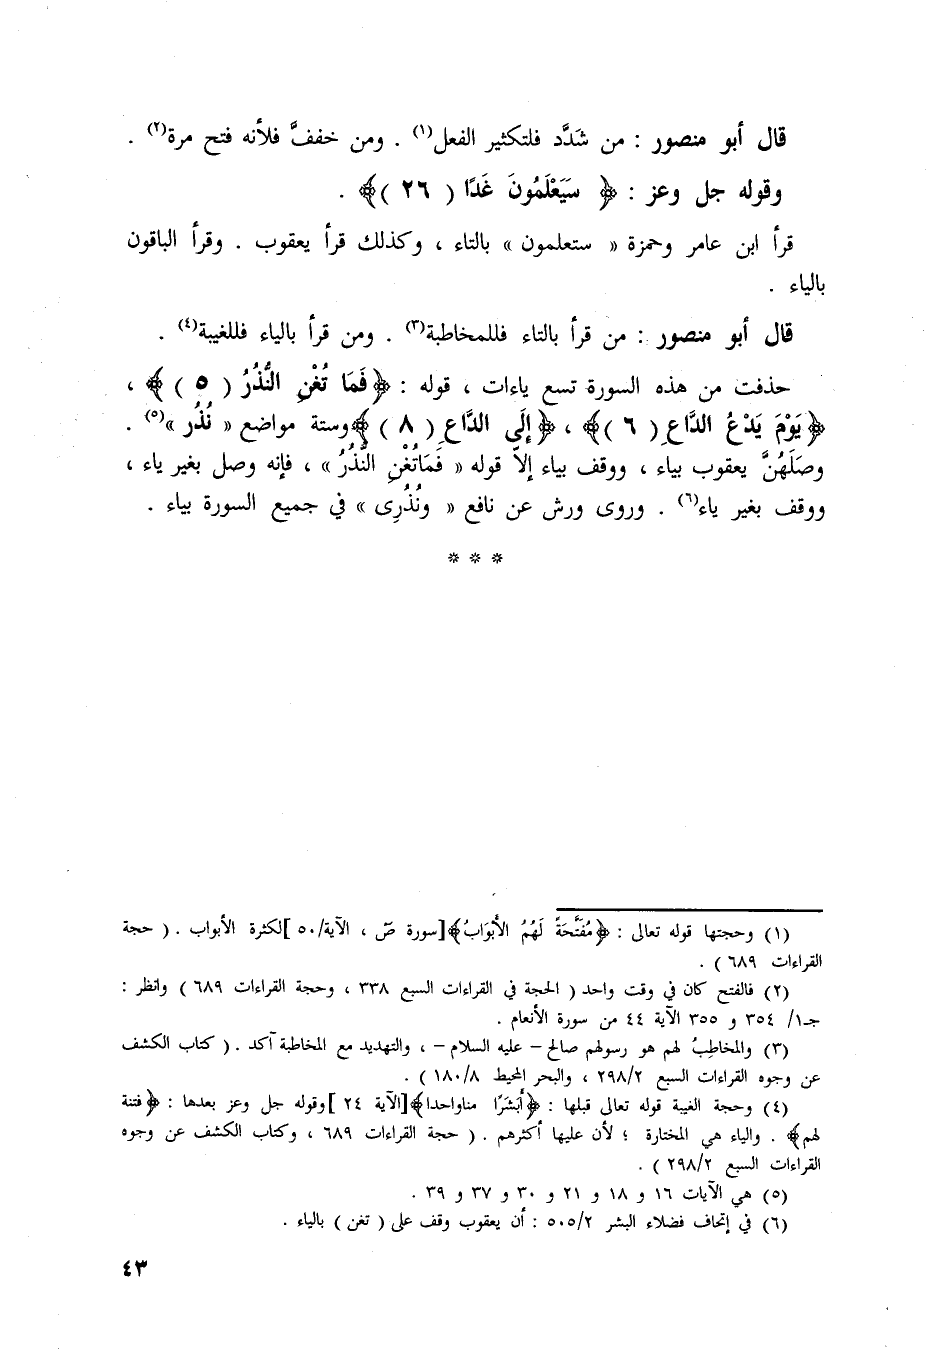 قال أبو منصور : من شَدَّد فلتكثير الفعل(١) . ومن خففَّ فلأنه فتح مرة(٢) .
وقوله جل وعز : ﴿ سَيَعْلَمُونَ غَدًا ( ٢٦ )﴾ .
قرأ ابن عامر وحمزة « ستعلمون » بالتاء ، وكذلك قرأ يعقوب . وقرأ الباقون
بالياء .
قال أبو منصور : من قرأ بالتاء فللمخاطبة(٣) . ومن قرأ بالياء فللغيبة(٤) .
حذفت من هذه السورة تسع ياءات ، قوله : ﴿فَمَا تُغْنِ النُّذُرُ ( ٥ ) ﴾ ،
﴿يَوْمَ يَدْعُ الدَّاعِ ( ٦ )﴾ ، ﴿إِلَى الدَّاعِ ( ٨ ) ﴾وستة مواضع « نُذُر »(٥) .
وصَلَهُنَّ يعقوب بياء ، ووقف بياء إلاَّ قوله « فَمَاتُغْنِ النُّذُرُ » ، فإنه وصل بغير ياء ،
ووقف بغير ياء(٦) . وروى ورش عن نافع « ونُذُرِى » في جميع السورة بياء .
* * *
(١) وحجتها قوله تعالى : ﴿مُفَتَّحَةً لَهُمُ الأَبْوَابُ﴾[سورة صّ ، الآية/٥٠ ]لكثرة الأبواب . ( حجة
القراءات ٦٨٩ ) .
(٢) فالفتح كان في وقت واحد ( الحجة في القراءات السبع ٣٣٨ ، وحجة القراءات ٦٨٩ ) وانظر :
جـ١/ ٣٥٤ و ٣٥٥ الآية ٤٤ من سورة الأنعام .
(٣) والمخاطِبُ لهم هو رسولهم صالح – عليه السلام – ، والتهديد مع المخاطبة آكد . ( كتاب الكشف
عن وجوه القراءات السبع ٢٩٨/٢ ، والبحر المحيط ١٨٠/٨ ) .
(٤) وحجة الغيبة قوله تعالى قبلها : ﴿أَبَشَرًا مناواحدا﴾[الآية ٢٤ ]وقوله جل وعز بعدها : ﴿فتنة
لهم﴾ . والياء هي المختارة ؛ لأن عليها أكثرهم . ( حجة القراءات ٦٨٩ ، وكتاب الكشف عن وجوه
القراءات السبع ٢٩٨/٢ ) .
(٥) هي الآيات ١٦ و ١٨ و ٢١ و ٣٠ و ٣٧ و ٣٩ .
(٦) في إتحاف فضلاء البشر ٥٠٥/٢ : أن يعقوب وقف على ( تغن ) بالياء .
٤٣